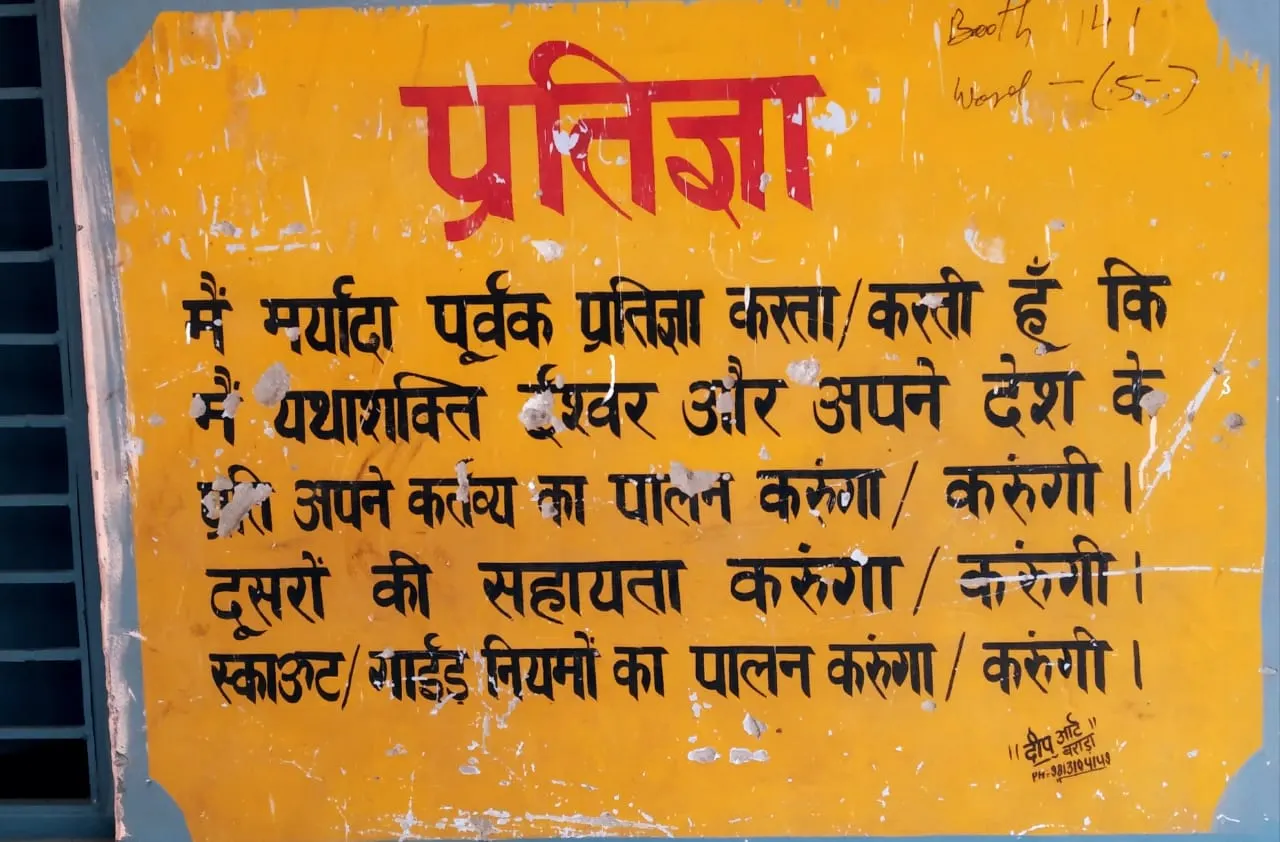 Booth 141
Ward - (5)
प्रतिज्ञा
मैं मर्यादा पूर्वक प्रतिज्ञा करता/करती हूँ कि
मैं यथाशक्ति ईश्वर और अपने देश के
प्रति अपने कर्तव्य का पालन करुंगा / करुंगी।
दूसरों की सहायता करुंगा / करुंगी।
स्काऊट/गाईड नियमों का पालन करुंगा / करुंगी।
"दीप आर्ट"
बराड़ा
PH-